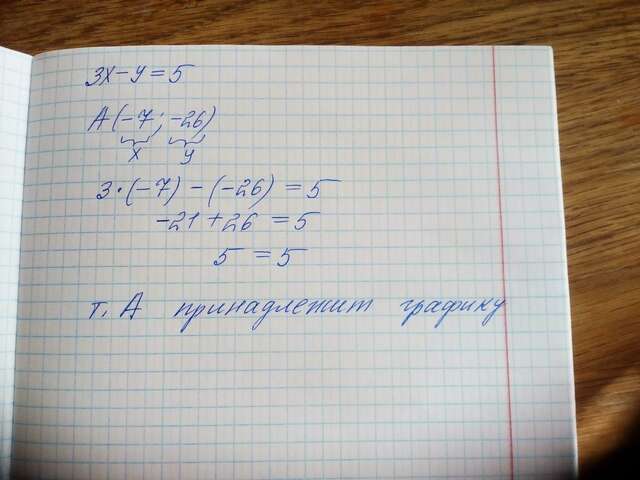 3x-y=5
A(-7; -26)
x y
3·(-7)-(-26)=5
-21+26=5
5=5
т. А принадлежит графику